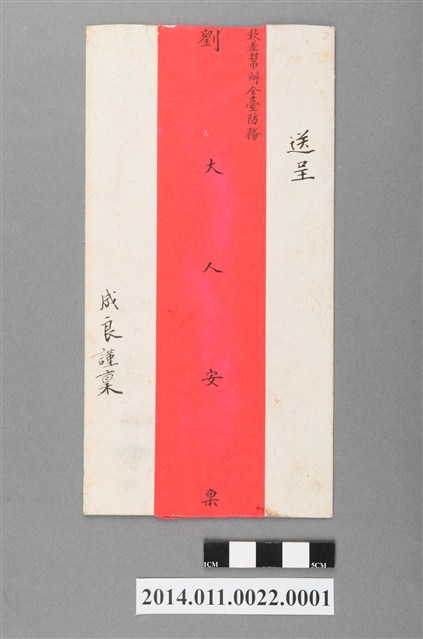 送呈
欽差幫辦全臺防務
劉大人安稟
成良謹稟
1CM 5CM
2014.011.0022.0001